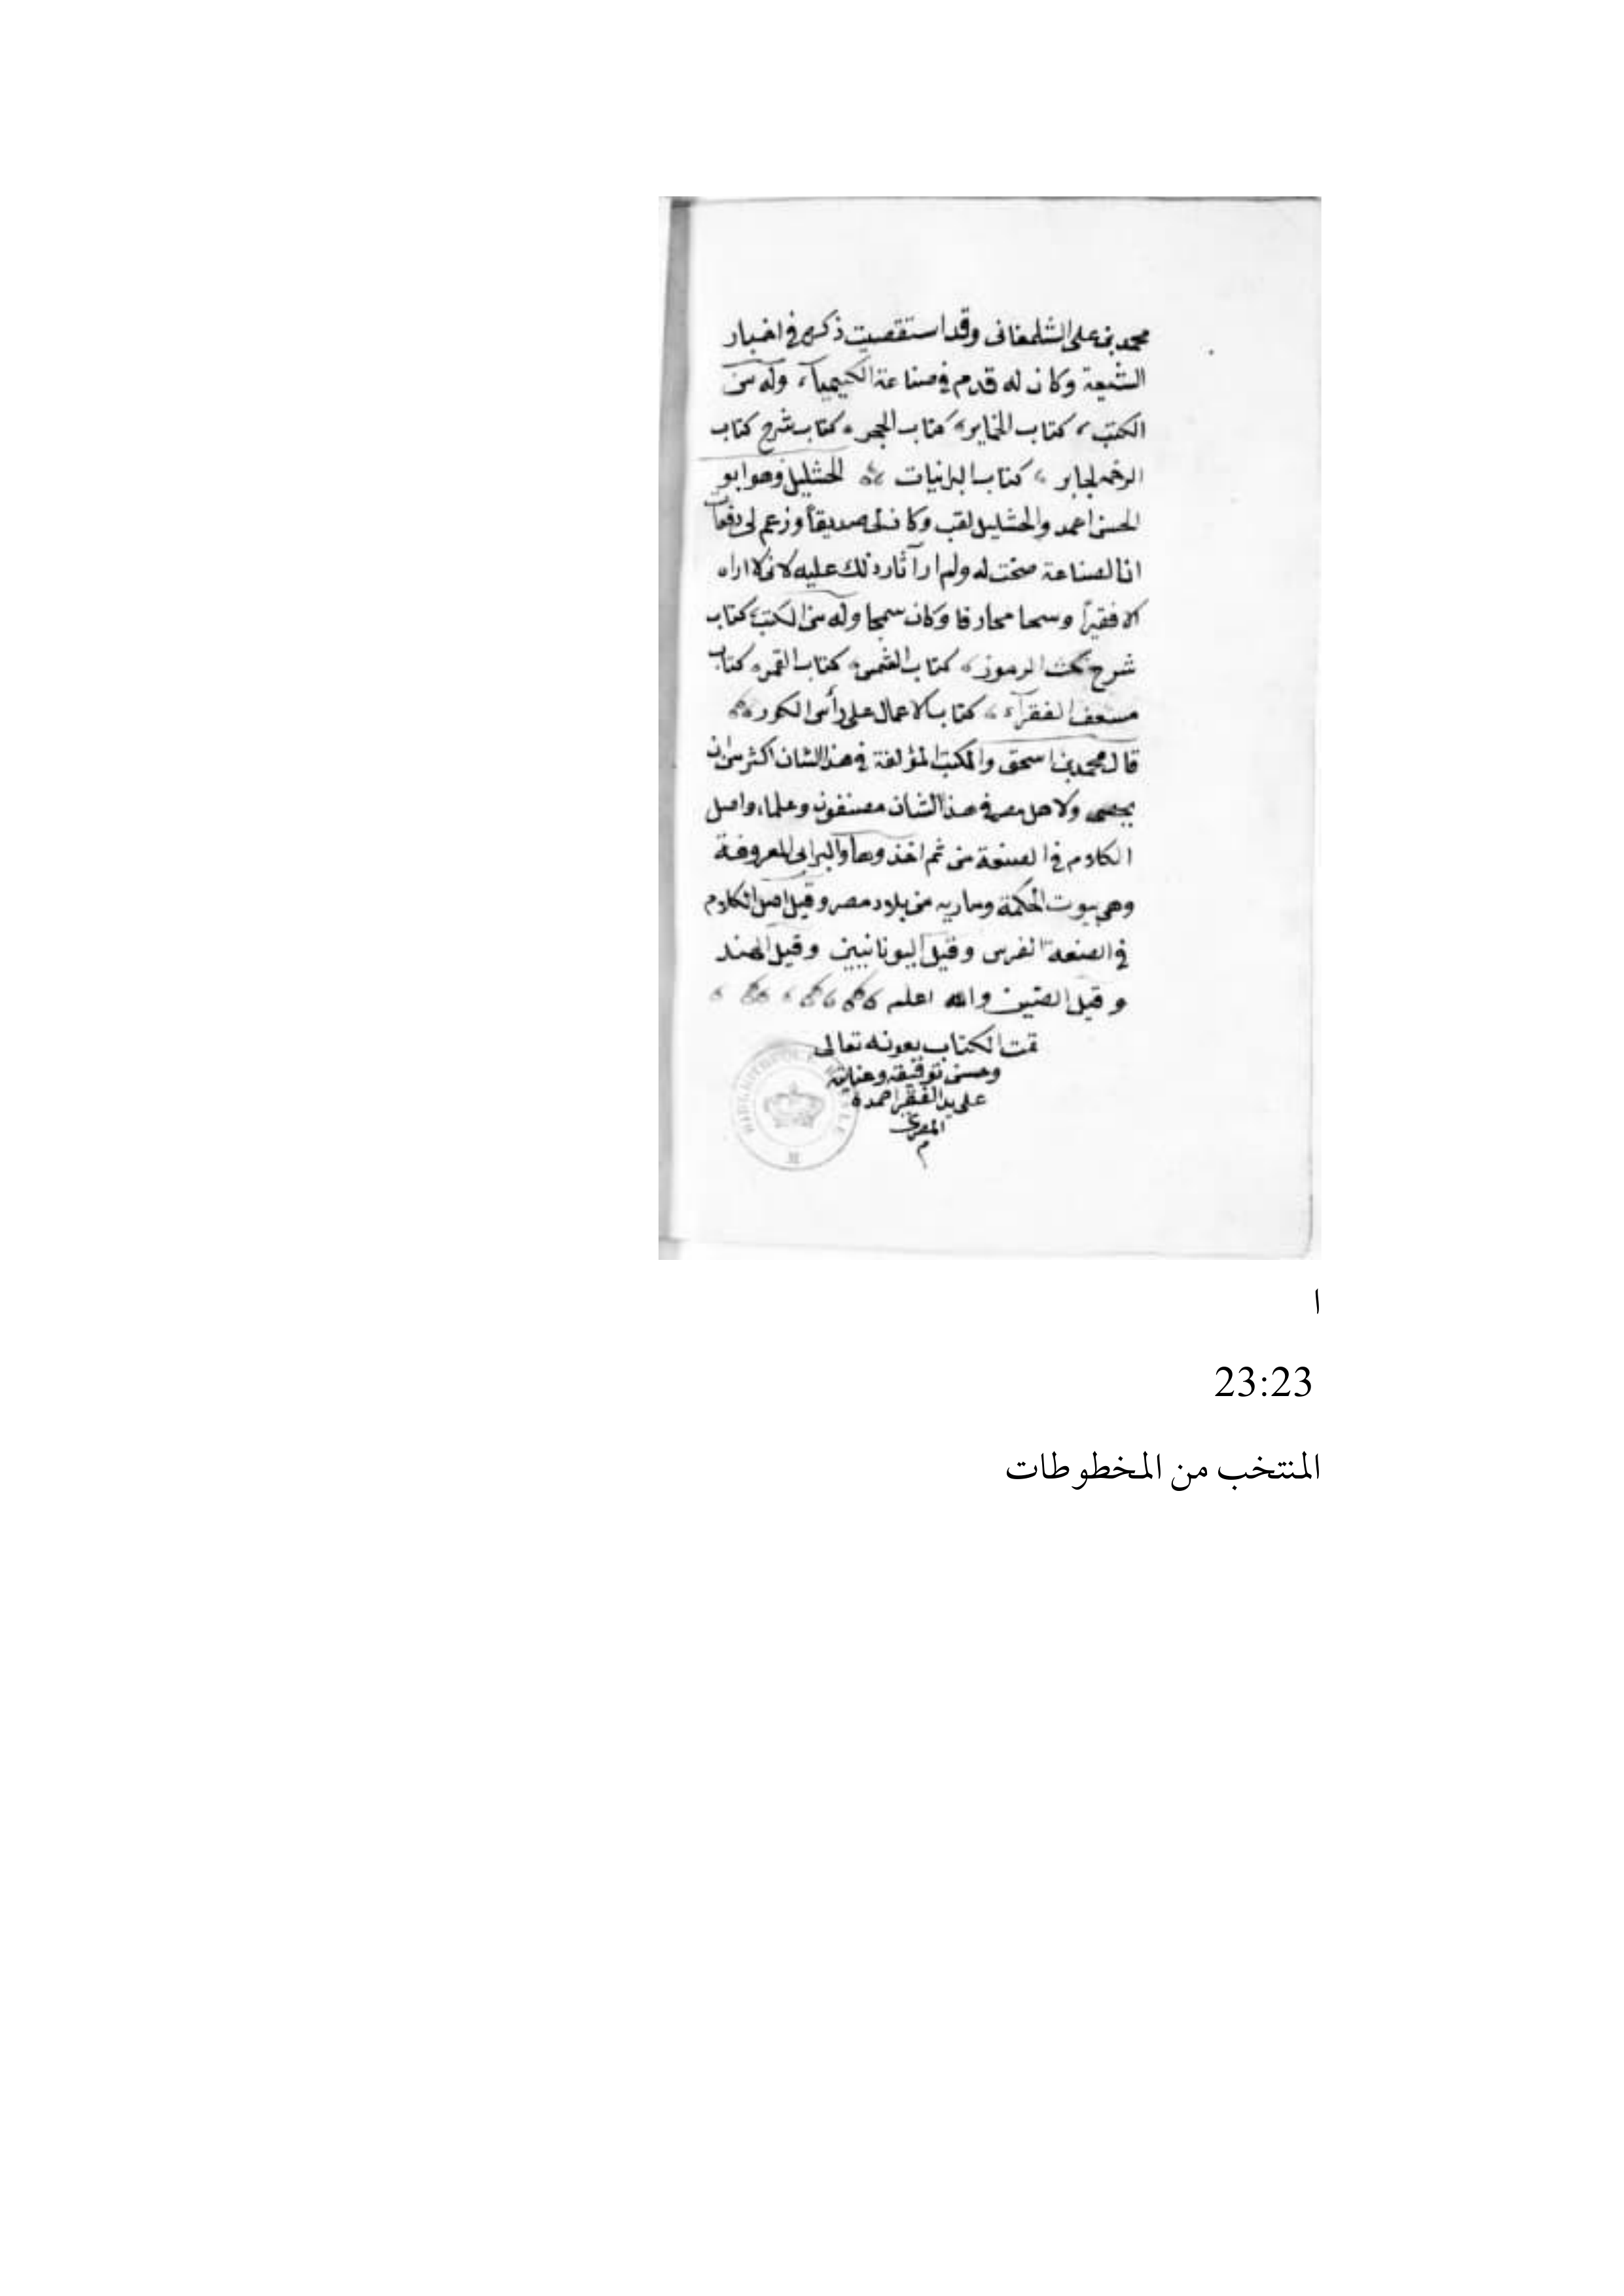 محمد بن على الشلمغانى وقد استقصيت ذكره فى اخبار
الشيعة وكان له قدم فى صناعة الكيمياء وله من
الكتب كتاب الخماير كتاب الحجر كتاب شرح كتاب
الرحمه لجابر كتاب البرانيات الخشليل وهو ابو
الحسن احمد والخشليل لقب وكان لى صديقاً وزعم لى دفعات
ان الصناعة صحت له ولم ار آثار ذلك عليه لانى لا اراه
الا فقيراً وسحا محارفا وكان سمجا وله من الكتب كتاب
شرح نكت الرموز كتاب الشمس كتاب القمر كتاب
مسعف الفقرآء كتاب الاعمال على رأس الكور
قال محمد بن اسحق والكتب المؤلفة فى هذا الشان اكثر من ان
يحصى ولاهل مصر فى هذا الشأن مصنفون وعلماء واصل
الكلام فى الصنعة من ثم اخذ وها والبرابى المعروفة
وهى بيوت الحكمة وماريه من بلاد مصر وقيل اصل الكلام
فى الصنعة الفرس وقيل اليونانيين وقيل الهند
وقيل الصين والله اعلم
تمت الكتاب بعونه تعالى
وحسن توفيقه وعنايته
على يد الفقير احمد
المصرى
م
ا
23:23
المنتخب من المخطوطات